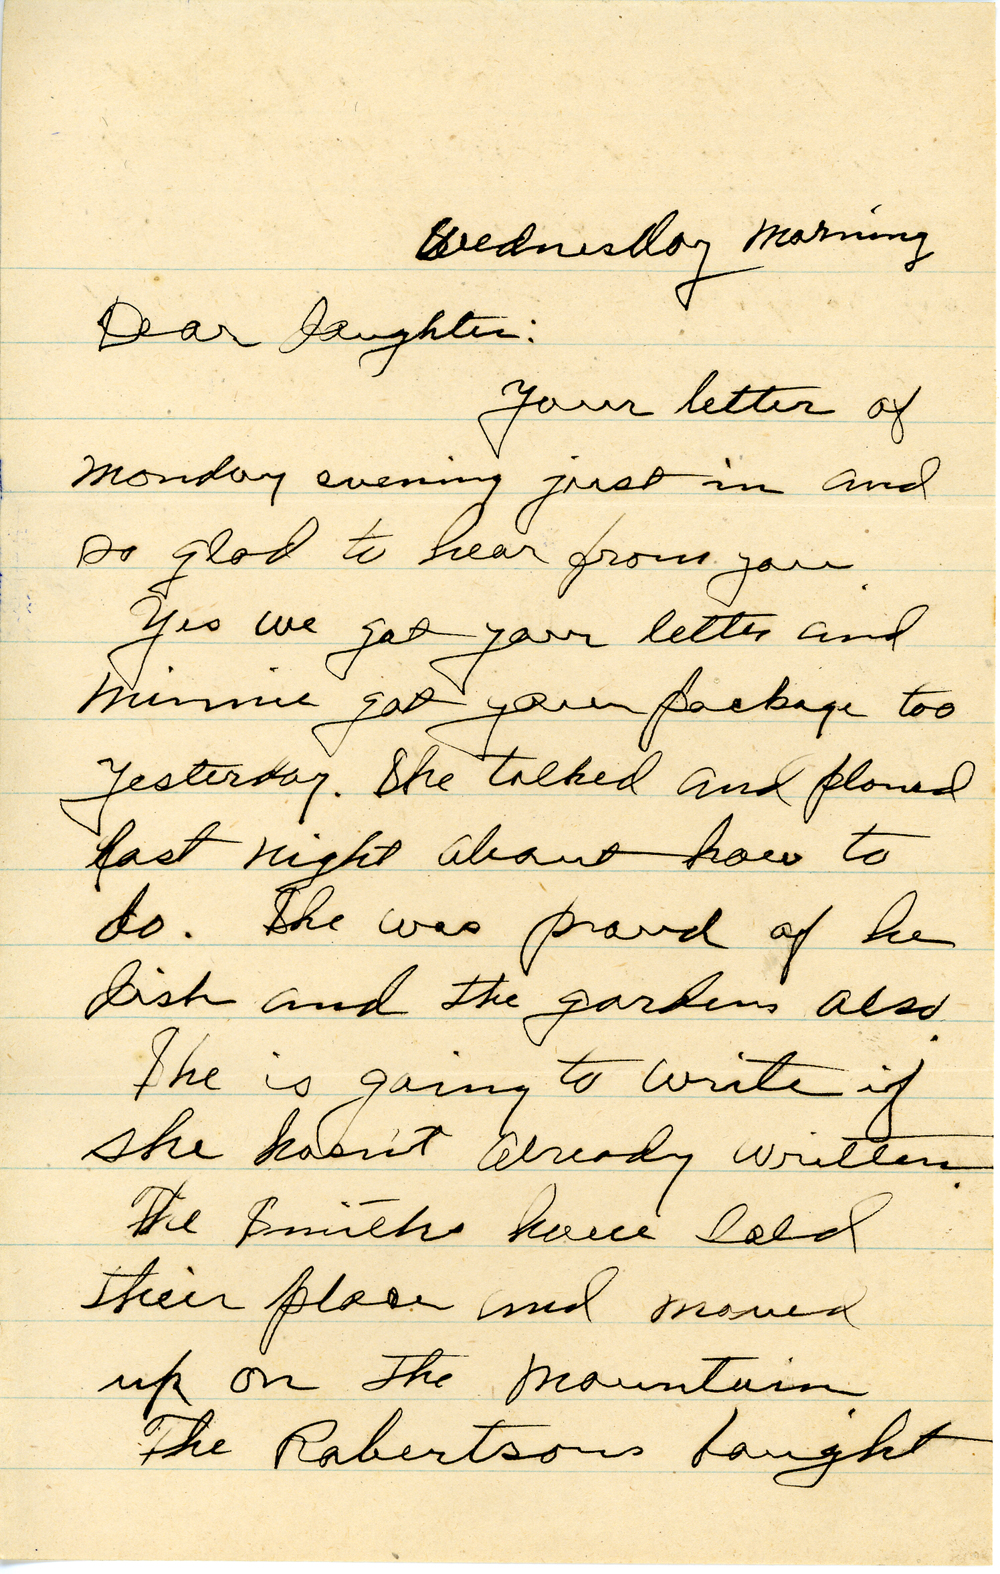 Wednesday Morning
Dear Daughter:
Your letter of
Monday evening just in and
so glad to hear from you
Yes we got your letter and
Minnie got your package too
yesterday. She talked and planed
last night about how to
do. She was proud of he
dish and the gardens also.
She is going to write if
she hasn't already written.
The Smiths have sold
their place and moved
up on the mountain
The Robertsons bought